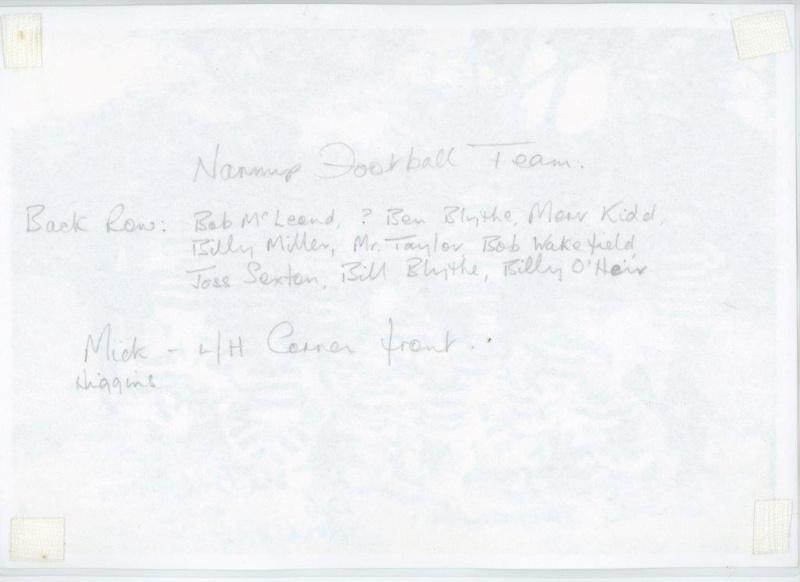 Nannup Football Team.
Back Row: Bob McLeond, ? Ben Blythe, Merv Kidd,
Billy Miller, Mr. Taylor Bob Wakefield,
Joss Sexton, Bill Blythe, Billy O'Heir
Mick - L/H Corner front..
Higgins